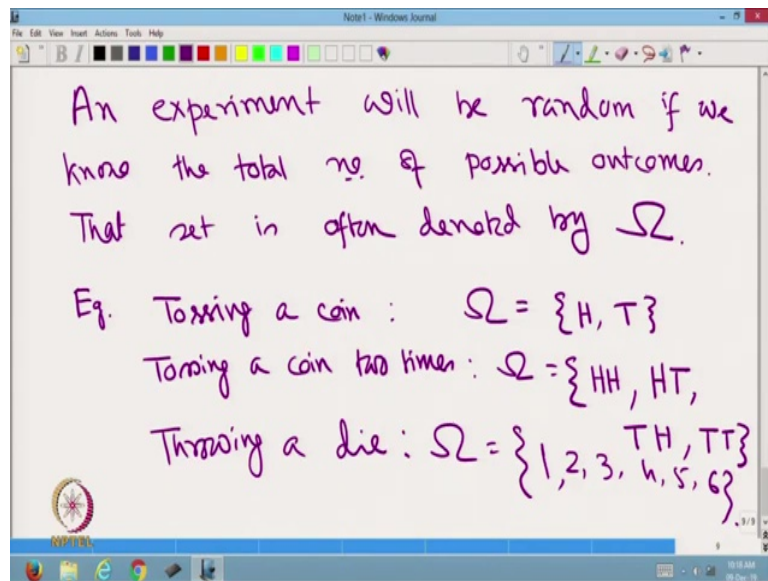 Note1 - Windows Journal
File Edit View Insert Actions Tools Help
B I
An experiment will be random if we
know the total no. of possible outcomes.
That set is often denoted by Ω.
Eg. Tossing a coin : Ω = {H, T}
Tossing a coin two times : Ω = {HH, HT,
TH, TT}
Throwing a die : Ω = {1, 2, 3, 4, 5, 6}.
NPTEL
9/9
9
10:18 AM